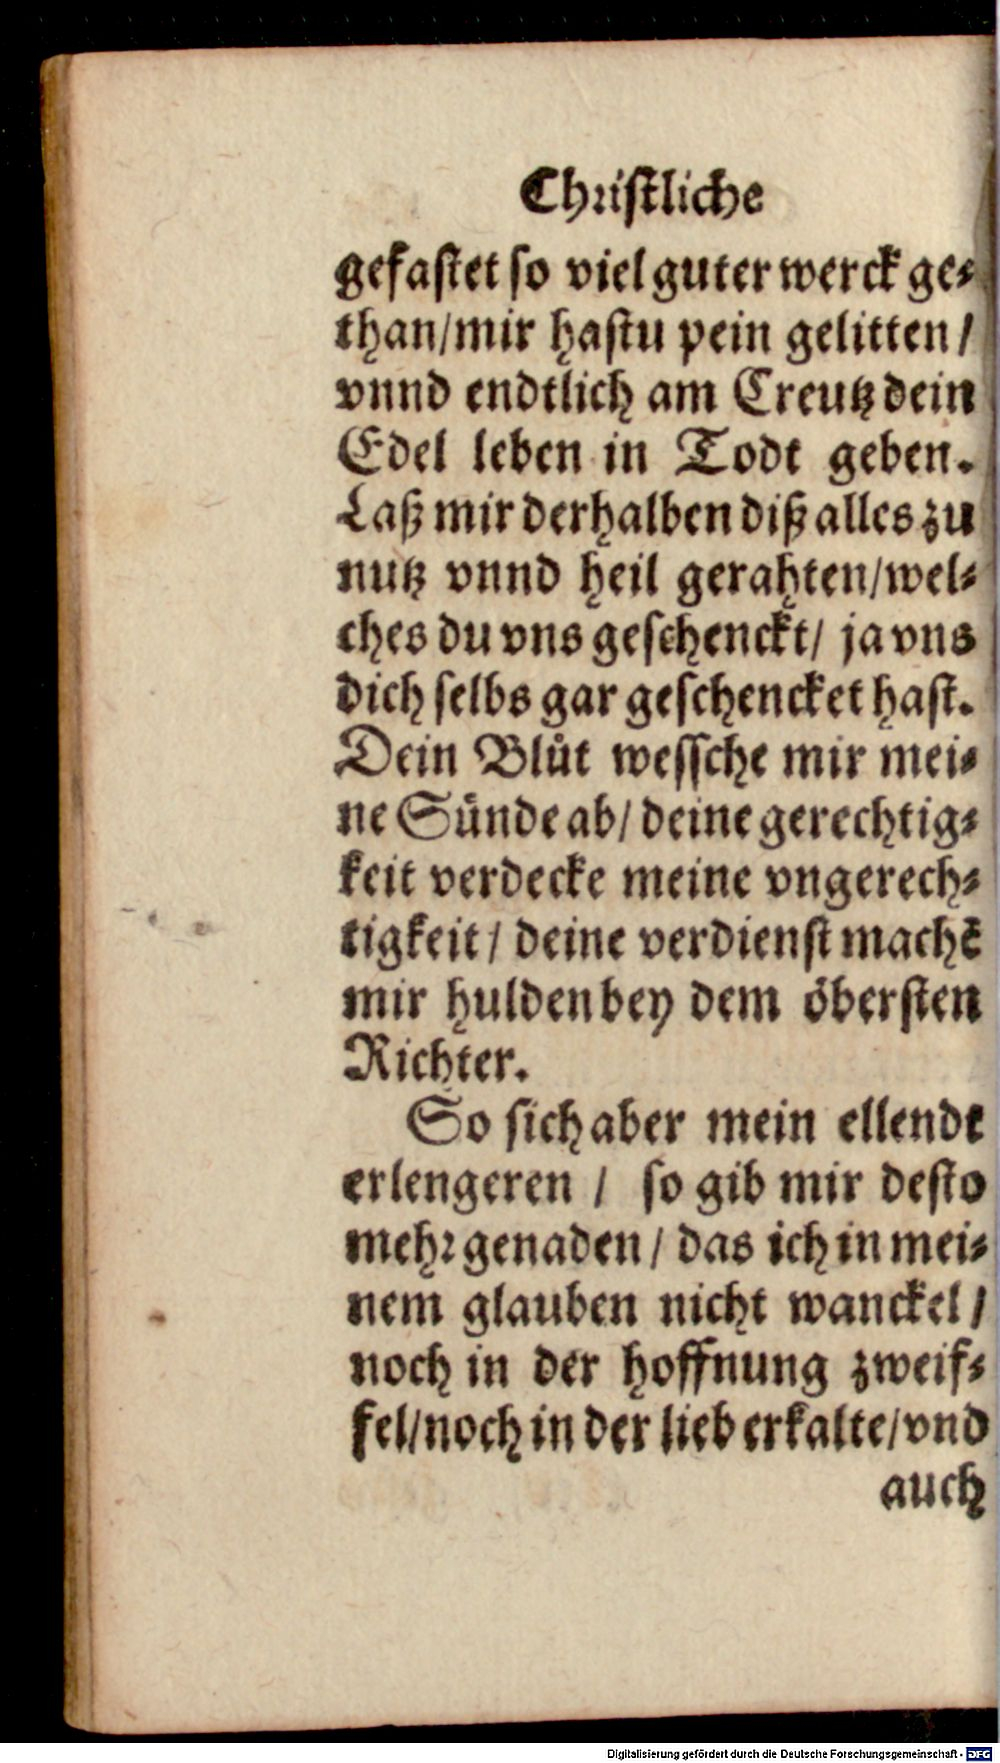 Christliche
gefastet so viel guter werck ge⸗
than/mir hastu pein gelitten/
vnnd endtlich am Creutz dein
Edel leben in Todt geben.
Laß mir derhalben diß alles zu
nutz vnnd heil gerahten/wel⸗
ches du vns geschenckt/ ja vns
dich selbs gar geschencket hast.
Dein Blůt wessche mir mei⸗
ne Sünde ab/ deine gerechtig⸗
keit verdecke meine vngerech⸗
tigkeit/ deine verdienst machẽ
mir hulden bey dem öbersten
Richter.
So sich aber mein ellendt
erlengeren / so gib mir desto
mehr genaden/ das ich in mei⸗
nem glauben nicht wanckel/
noch in der hoffnung zweif⸗
fel/noch in der lieb erkalte/vnd
auch
Digitalisierung gefördert durch die Deutsche Forschungsgemeinschaft - DFG